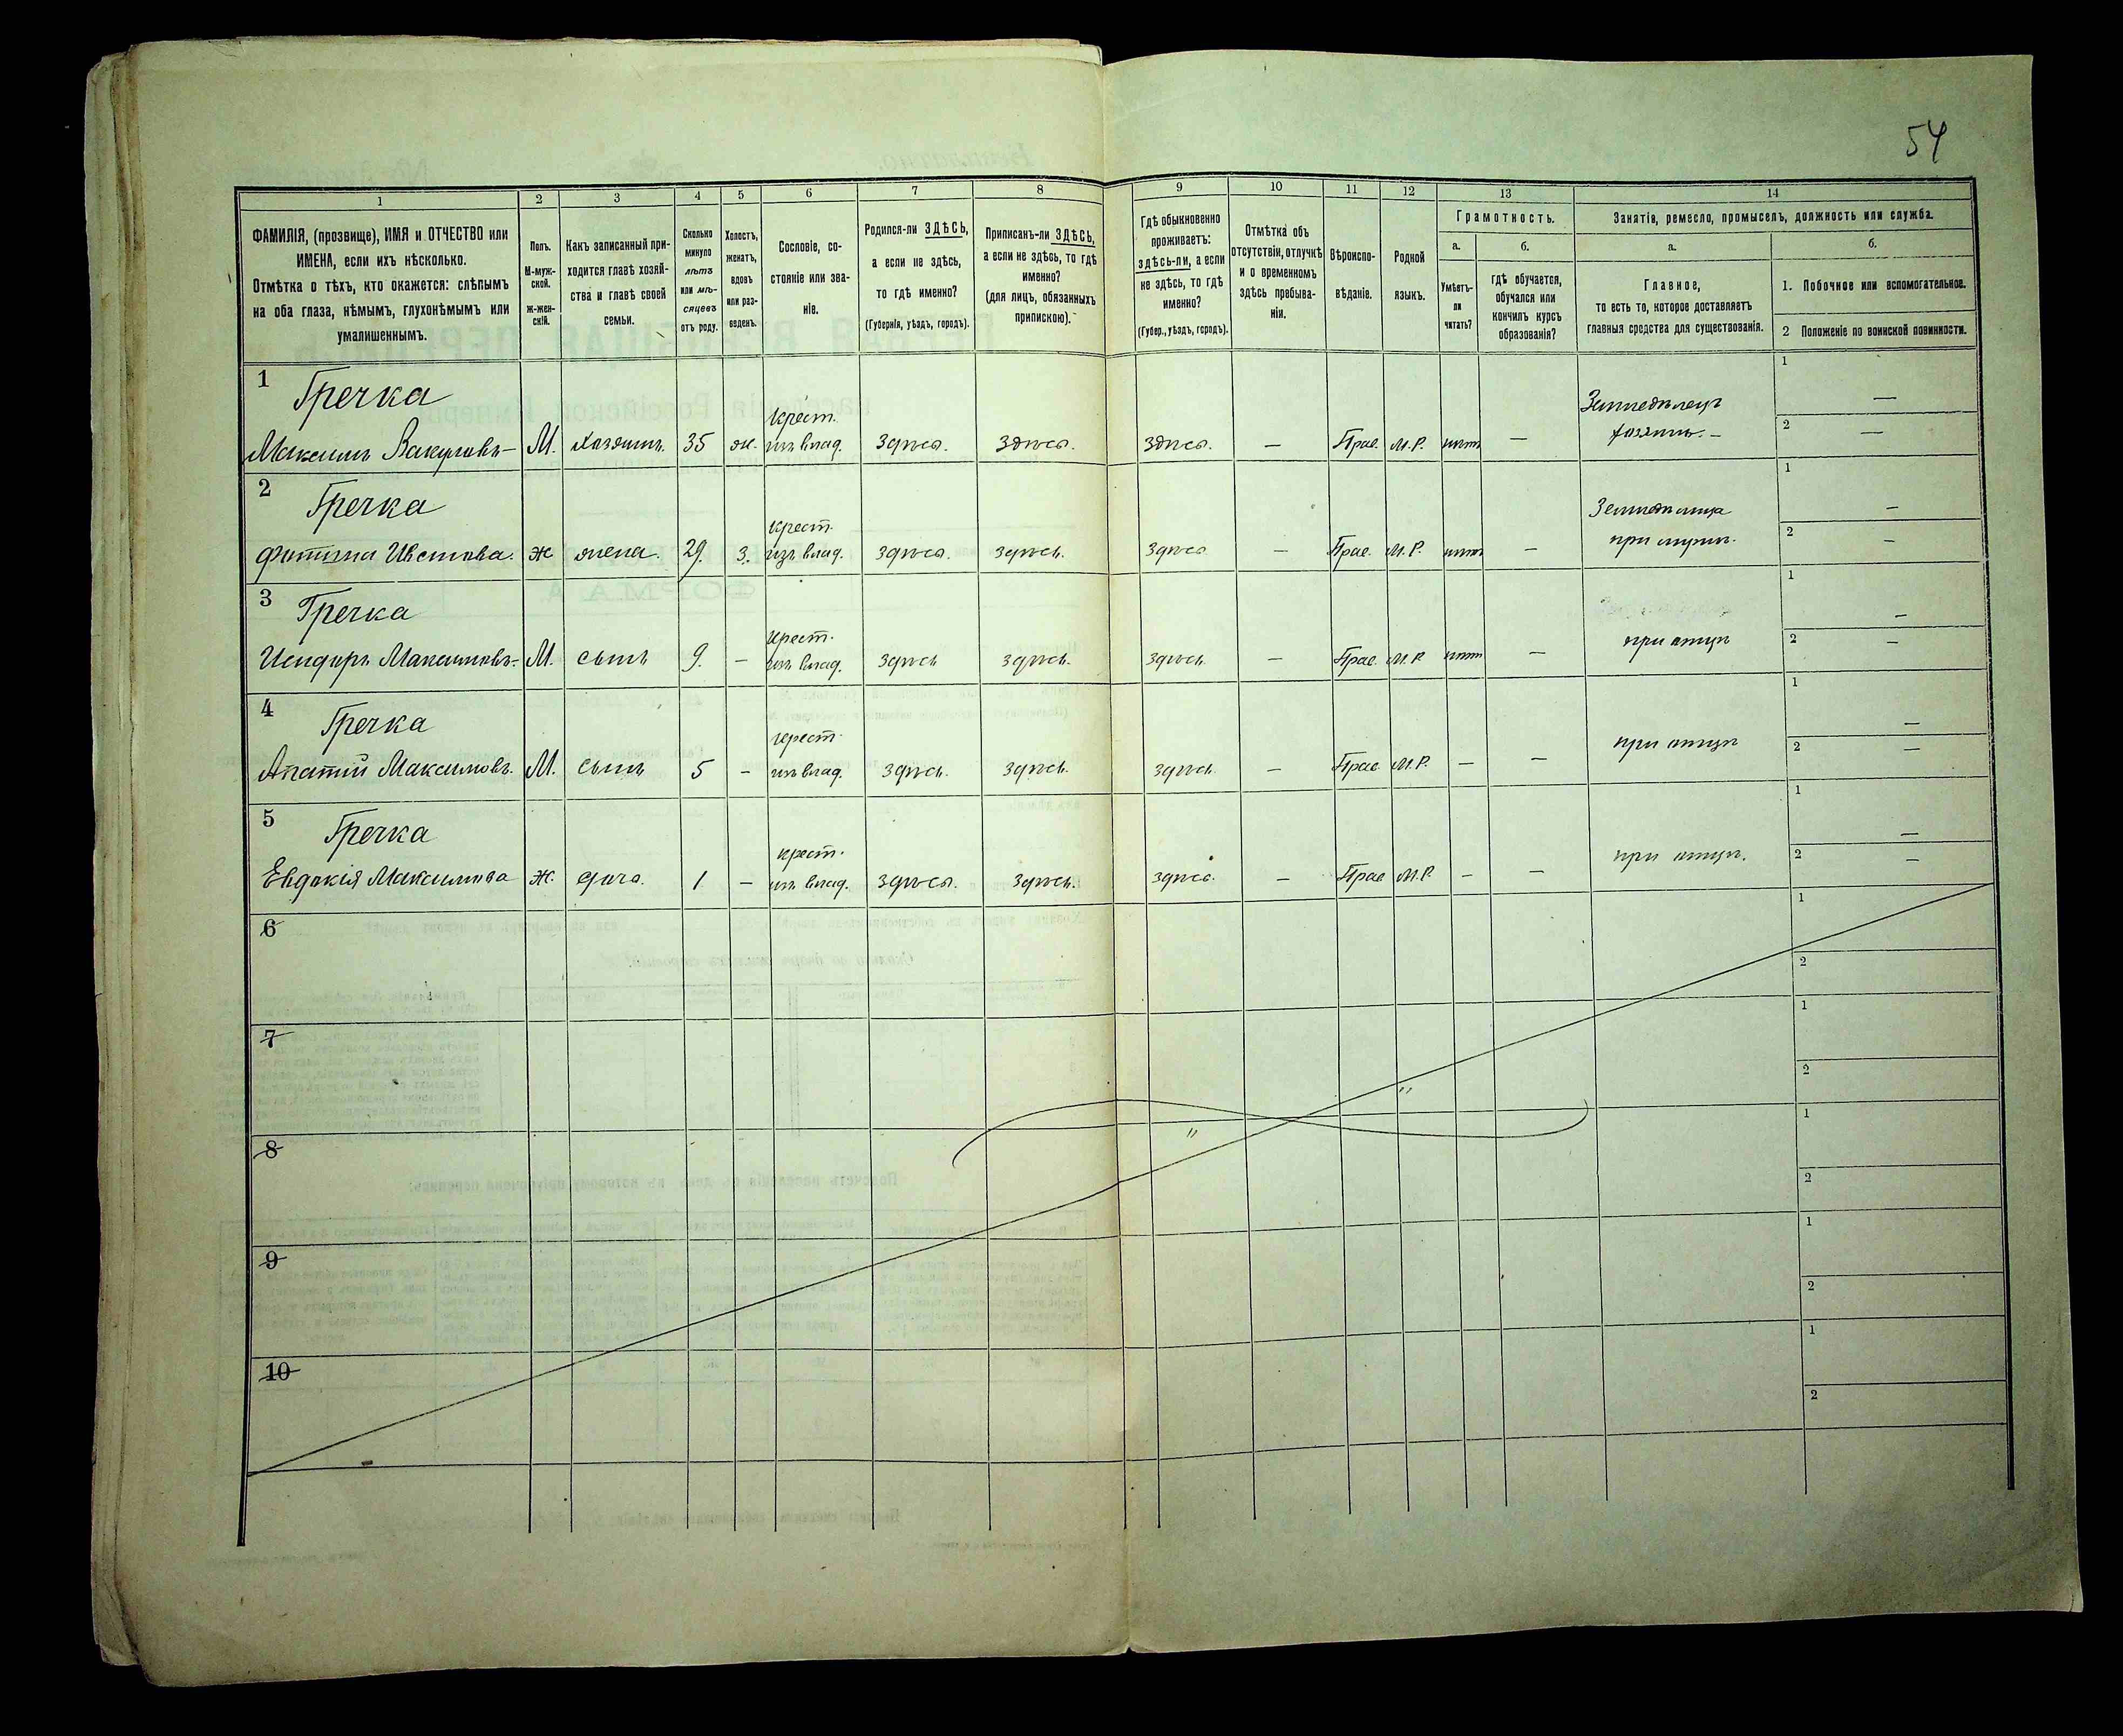 54
1 2 3 4 5 6 7 8 9 10 11 12 13 14
ФАМИЛІЯ, (прозвище), ИМЯ и ОТЧЕСТВО или
ИМЕНА, если ихъ нѣсколько.
Отмѣтка о тѣхъ, кто окажется: слѣпымъ
на оба глаза, нѣмымъ, глухонѣмымъ или
умалишеннымъ.
Полъ.
М-муж-
ской.
ж-жен-
скій.
Какъ записанный при-
ходится главѣ хозяй-
ства и главѣ своей
семьи.
Сколько
минуло
лѣтъ
или мѣ-
сяцевъ
отъ роду.
Холостъ,
женатъ,
вдовъ
или раз-
веденъ.
Сословіе, со-
стояніе или зва-
ніе.
Родился-ли ЗДѢСЬ,
а если не здѣсь,
то гдѣ именно?
(Губернія, уѣздъ, городъ).
Приписанъ-ли ЗДѢСЬ,
а если не здѣсь, то гдѣ
именно?
(для лицъ, обязанныхъ
припискою).
Гдѣ обыкновенно
проживаетъ:
здѣсь-ли, а если
не здѣсь, то гдѣ
именно?
(Губер., уѣздъ, городъ).
Отмѣтка объ
отсутствіи, отлучкѣ
и о временномъ
здѣсь пребыва-
ніи.
Вѣроиспо-
вѣданіе.
Родной
языкъ.
Грамотность.
а.
Умѣетъ-
ли
читать?
б.
гдѣ обучается,
обучался или
кончилъ курсъ
образованія?
Занятія, ремесло, промыселъ, должность или служба.
а.
Главное,
то есть то, которое доставляетъ
главныя средства для существованія.
б.
1. Побочное или вспомогательное.
2 Положеніе по воинской повинности.
1 Гречка Крест. Земледѣлецъ 1 —
Максимъ Вакуловъ — М. хозяинъ. 35 ж. изъ влад. здѣсь. здѣсь. здѣсь. — Прав. М.Р. нѣтъ — хозяинъ. — 2 —
2 Гречка Крест. 1 —
ж жена. 29. з. изъ влад. здѣсь. здѣсь. здѣсь — Прав. М.Р. нѣтъ — при мужѣ. 2 —
3 Гречка Крест. 1 —
Максимовъ. — М. сынъ 9. — изъ влад. здѣсь здѣсь. здѣсь. — Прав. М.Р. нѣтъ — при отцѣ 2 —
4 Гречка Крест. 1 —
Максимовъ. М. сынъ 5 — изъ влад. здѣсь. здѣсь. здѣсь — Прав. М.Р. — — при отцѣ 2 —
5 Гречка Крест. 1 —
Евдокія Максимова ж. дочь. 1 — изъ влад. здѣсь. здѣсь. здѣсь. — Прав М.Р. — — при отцѣ. 2 —
6 1
2
7 1
2
8 1
2
9 1
2
10 1
2